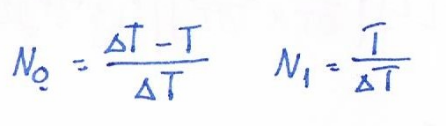 N₀ = (ΔT - T) / ΔT    N₁ = T / ΔT